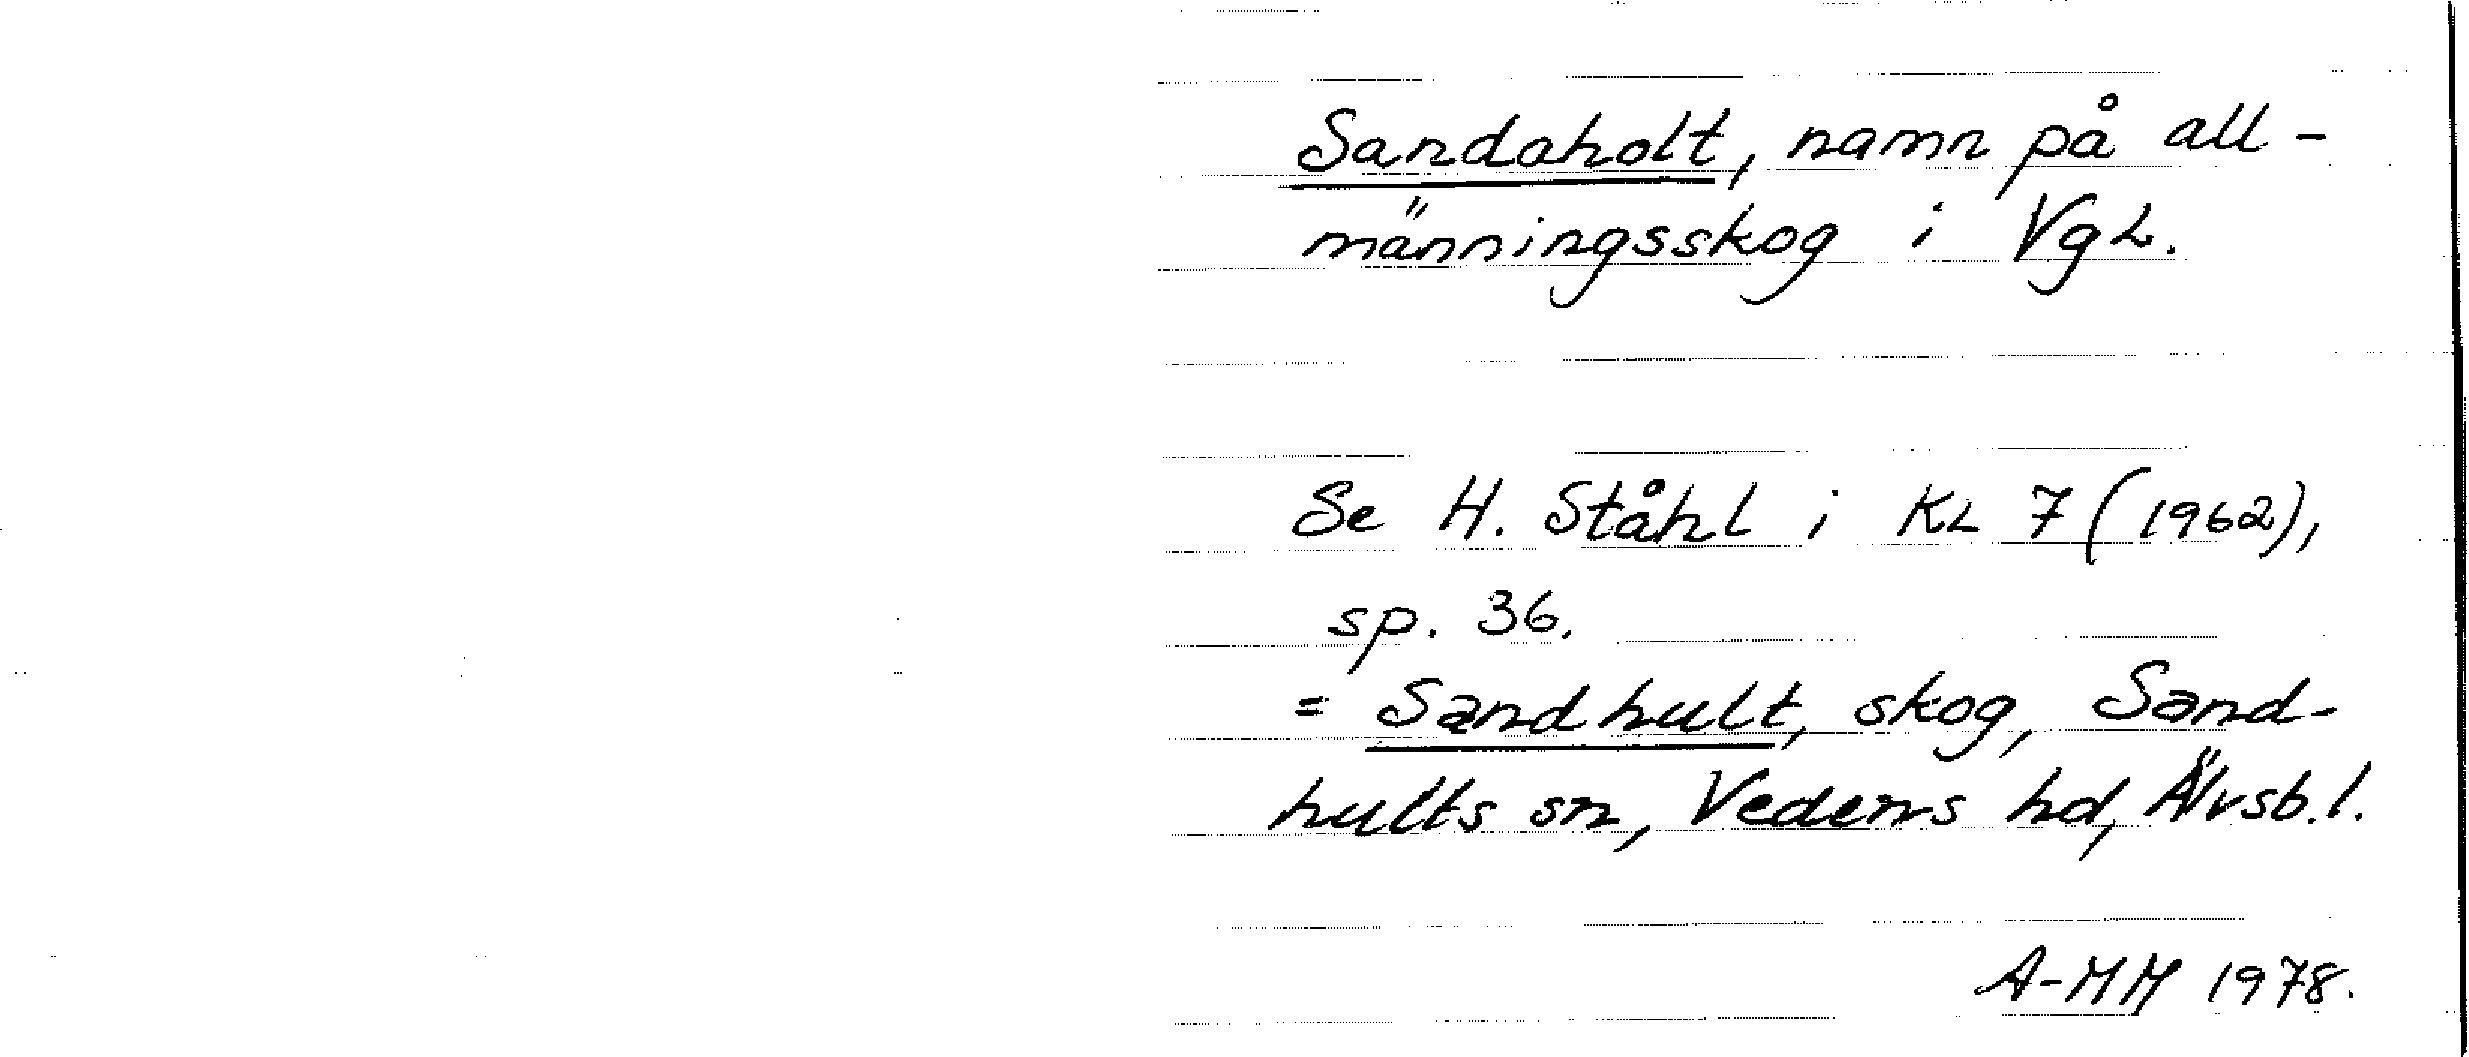 Sandaholt, namn på all-
männingsskog i VgL.
Se H. Ståhl i KL 7 (1962),
sp. 36.
= Sandhult, skog, Sand-
hults sn, Vedens hd, Älvsb. l.
A-MM 1978.